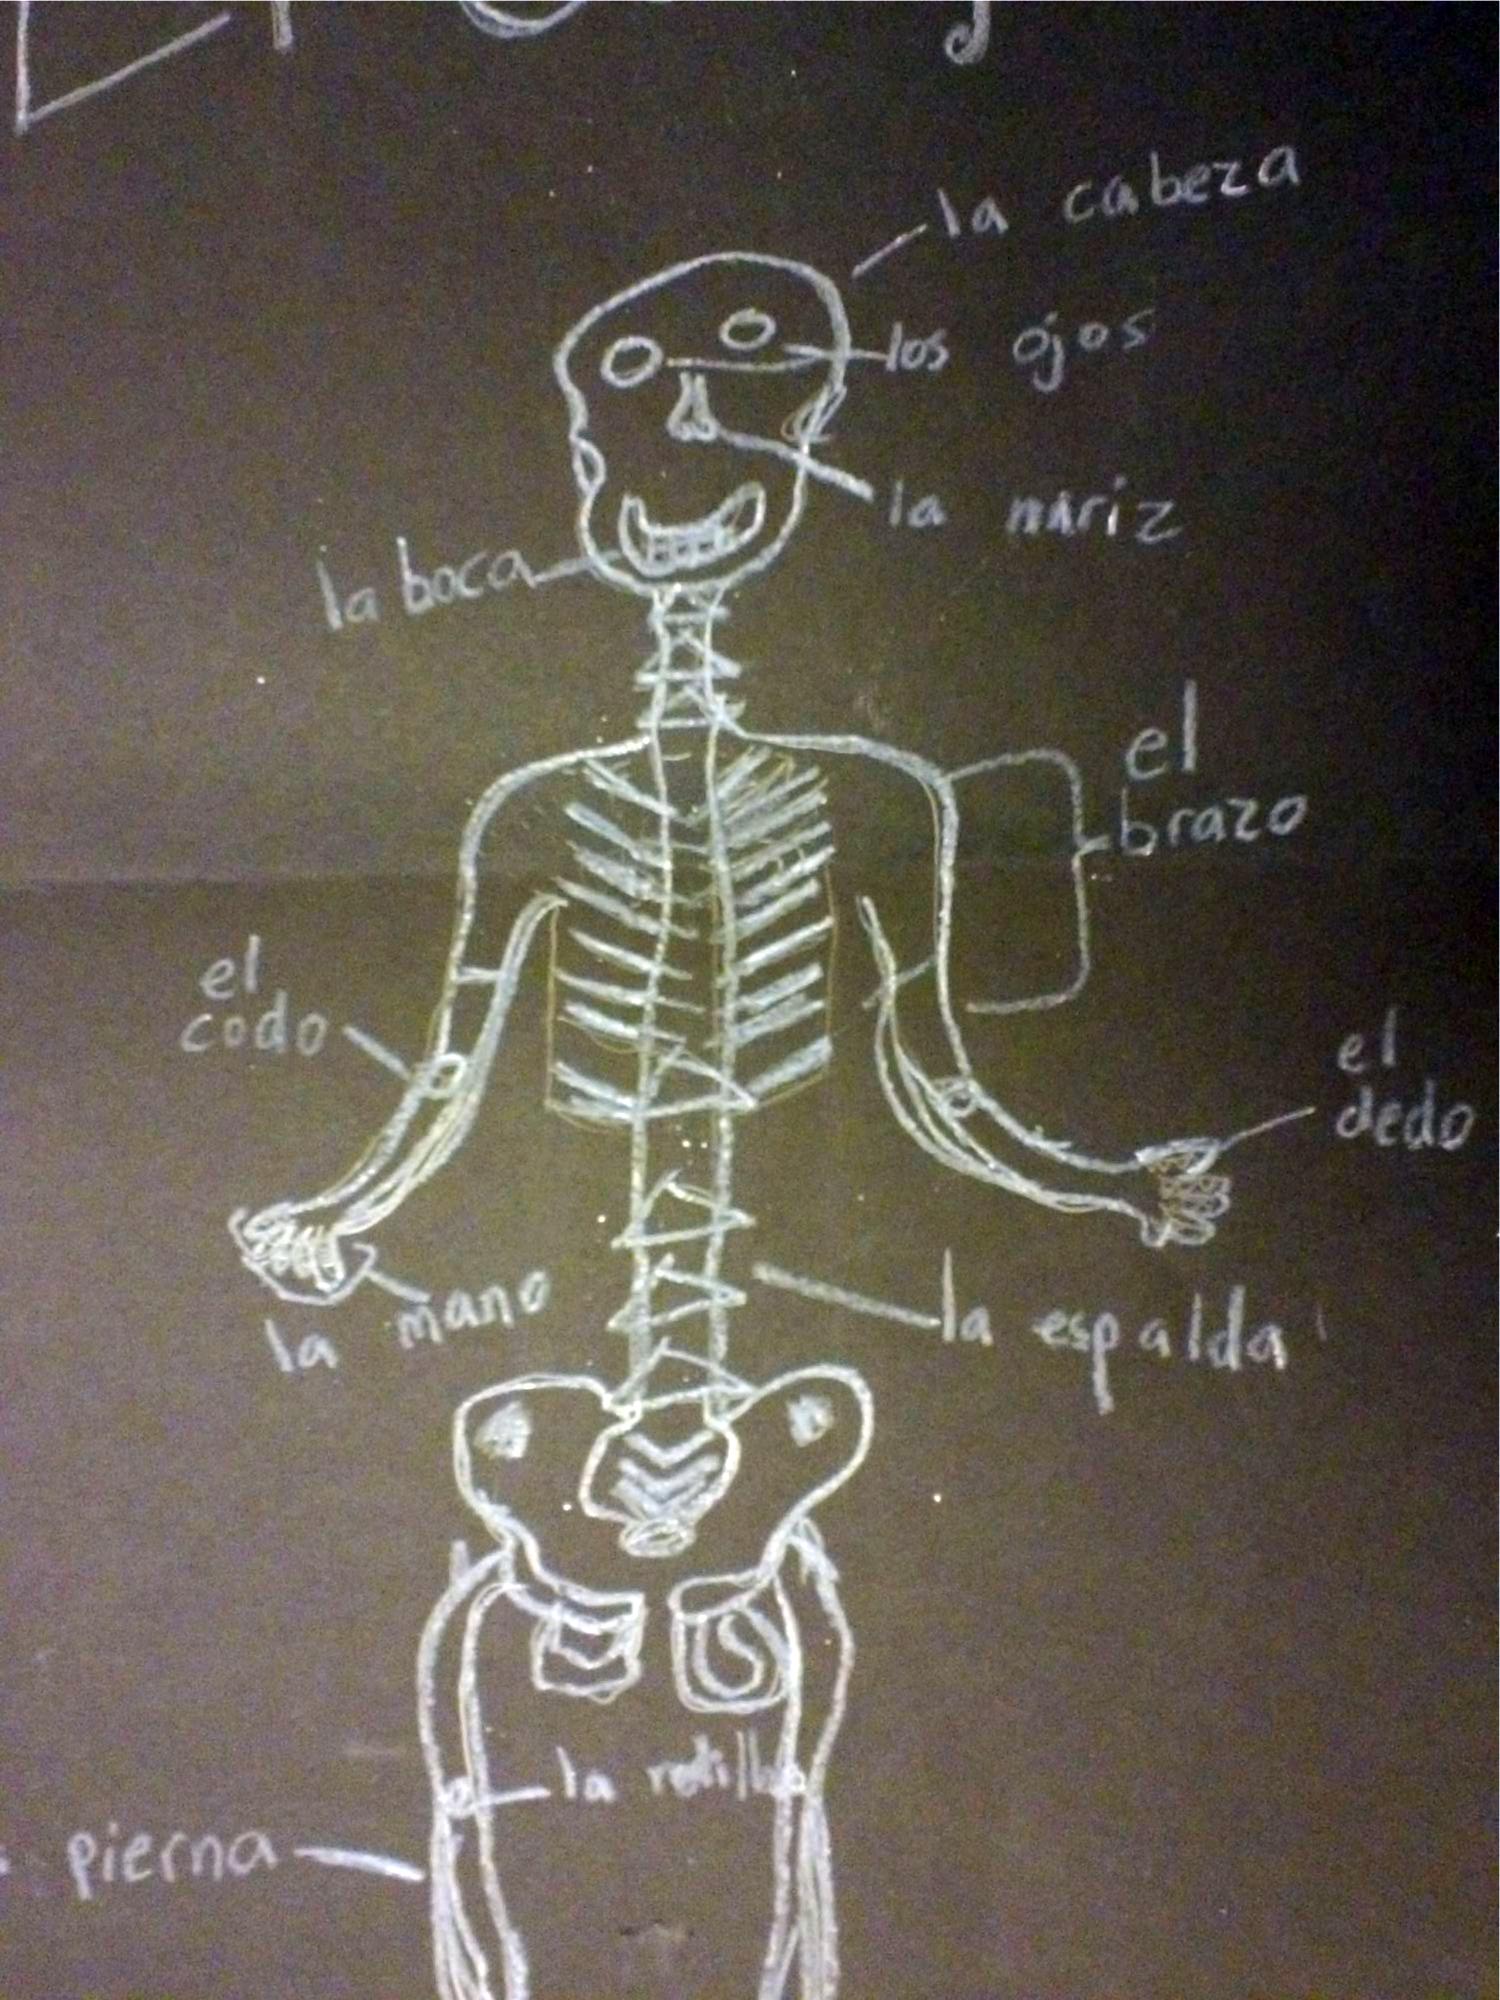 la cabeza
los ojos
la nariz
la boca
el
brazo
el
codo
el
dedo
la mano
la espalda
la rodilla
pierna